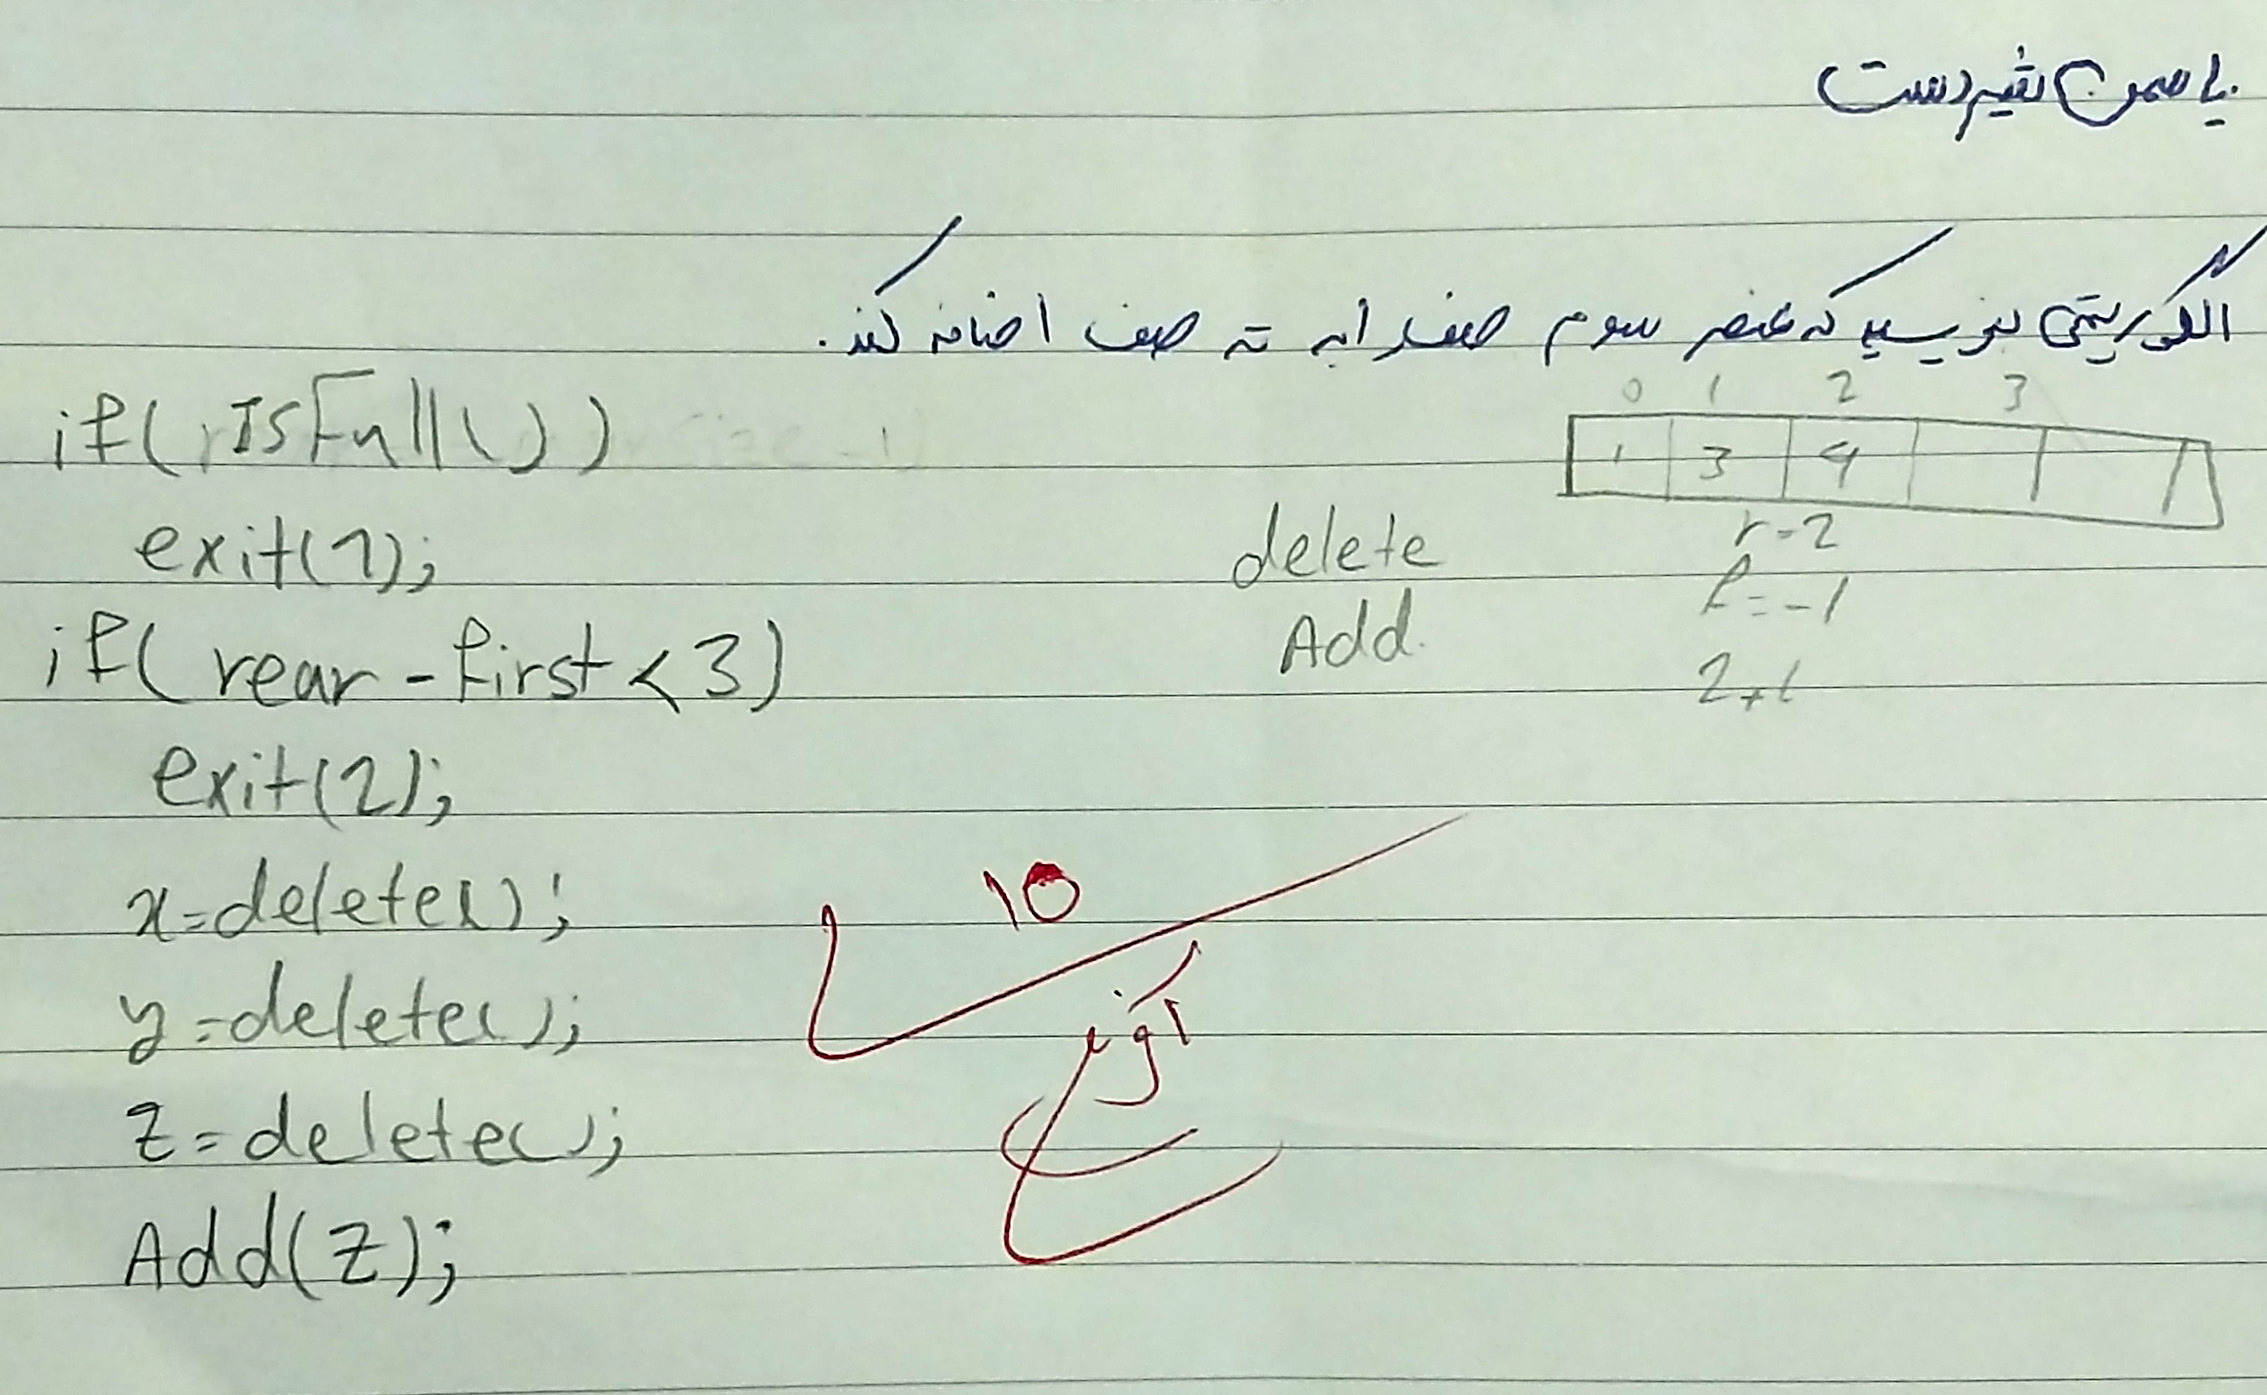 یاسمن شیردست
الگوریتمی بنویسید که عنصر سوم صف را به ته صف اضافه کند.
0 1 2 3
1 3 4
r=2
f=-1
2+1
delete
Add
if( IsFull())
exit(1);
if( rear - first < 3)
exit(2);
x=delete();
y=delete();
z=delete();
Add(z);
10